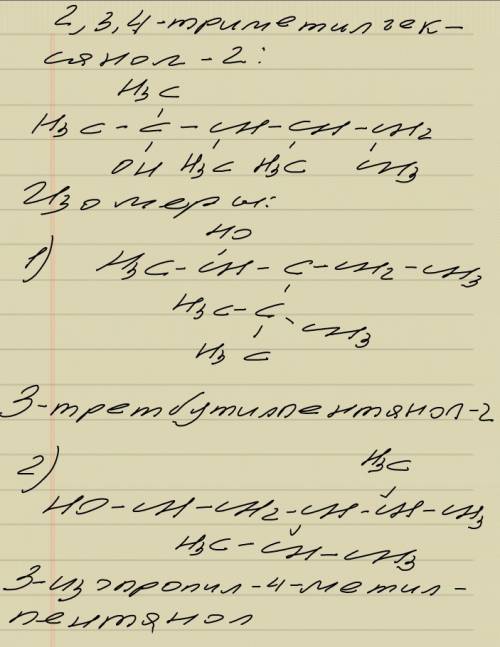 2,3,4-триметилгек-
сянол-2:
H3C
H3C - C - CH - CH - CH2
OH H3C H3C CH3
Изомеры:
HO
1) H3C - CH - C - CH2 - CH3
H3C - C - CH3
H3C
3-третбутилпентянол-2
2) H3C
HO - CH - CH2 - CH - CH - CH3
H3C - CH - CH3
3-изопропил-4-метил-
пентянол